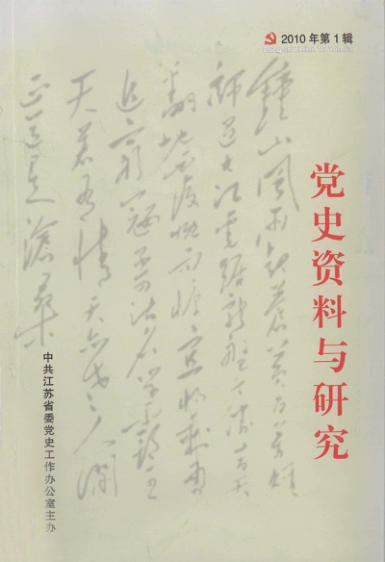 2010年第1辑
党史资料与研究
鐘山風雨起蒼黃百萬雄
師過大江虎踞龍盤今勝昔天
翻地覆慨而慷宜將剩勇
追窮寇不可沽名學霸王
天若有情天亦老人間
正道是滄桑
中共江苏省委党史工作办公室主办